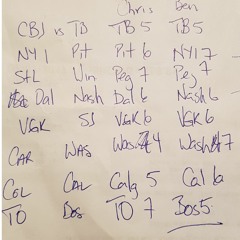 Chris Ben
CBJ vs TB TB 5 TB 5
NYI Pit Pit 6 NYI 7
StL Win Peg 7 Peg 7
Dal Nash Dal 6 Nash 6
VGK SJ VGK 6 VGK 6
CAR WAS Was 4 Wash 7
COL CAL Calg 5 Cal 6
TO Bos TO 7 Bos 5